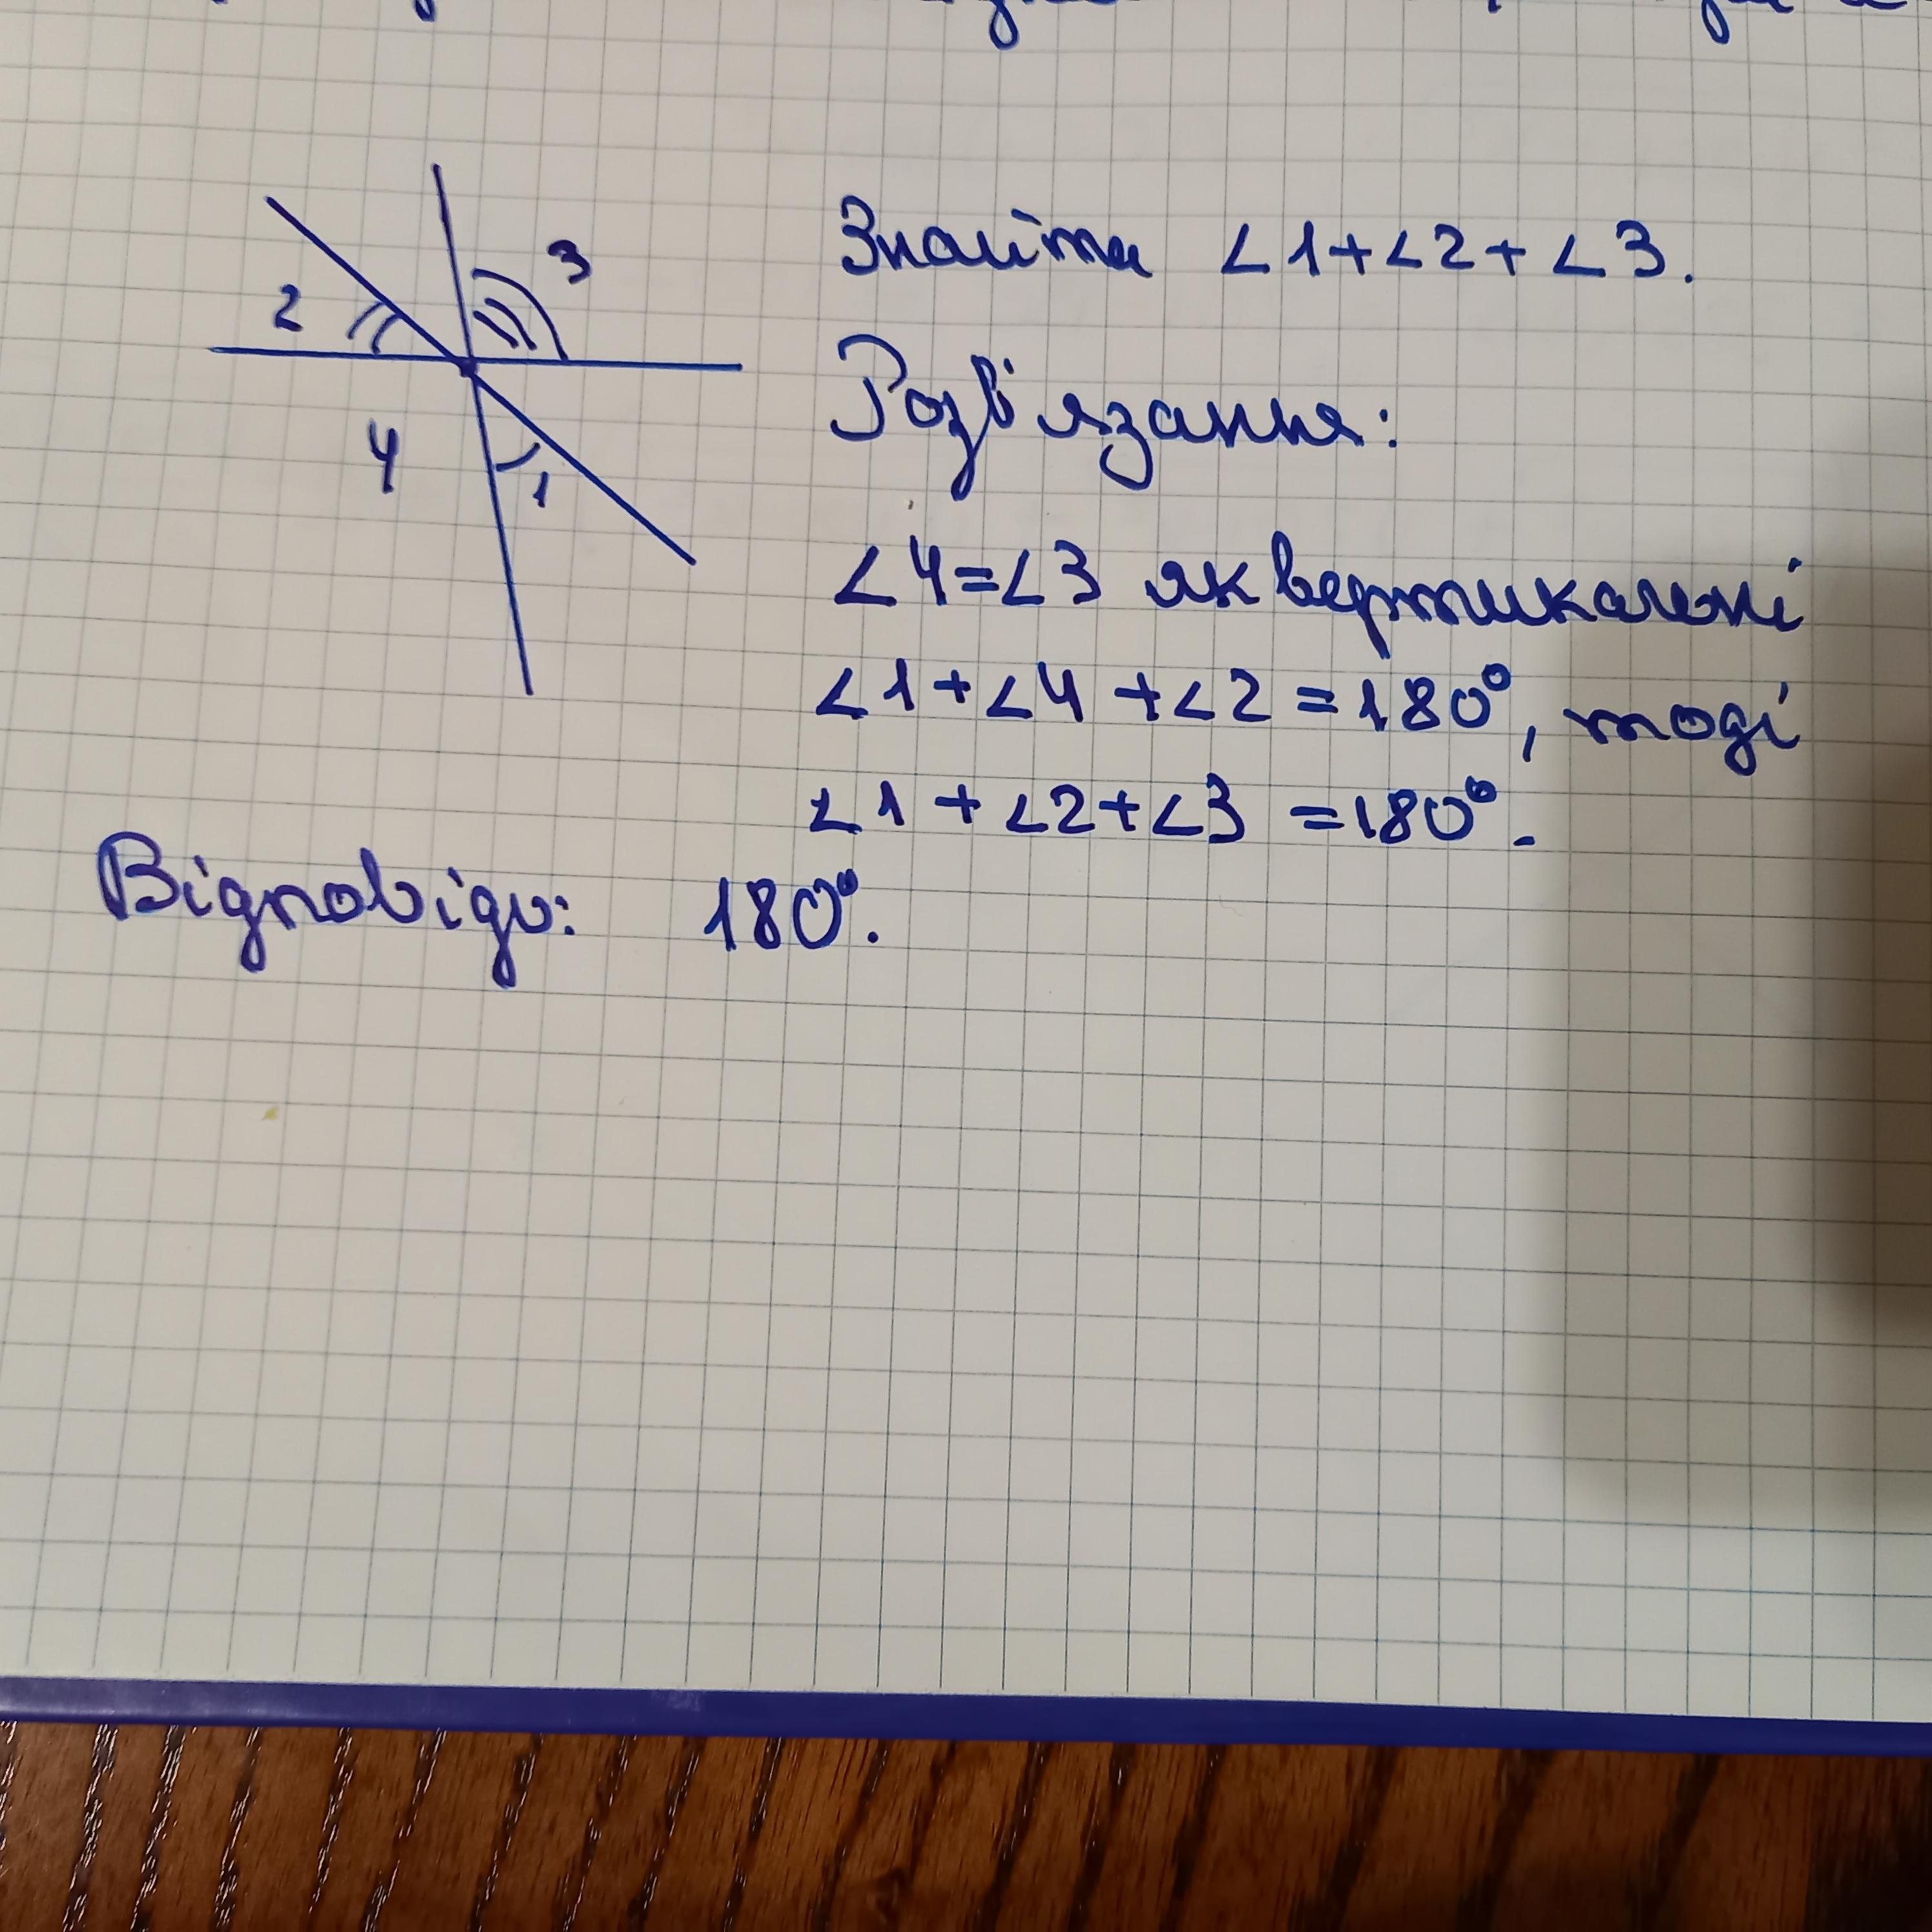 Знайти ∠1+∠2+∠3.
2
3
4
1
Розв'язання:
∠4=∠3 як вертикальні
∠1+∠4+∠2=180°, тоді
∠1+∠2+∠3=180°.
Відповідь: 180°.